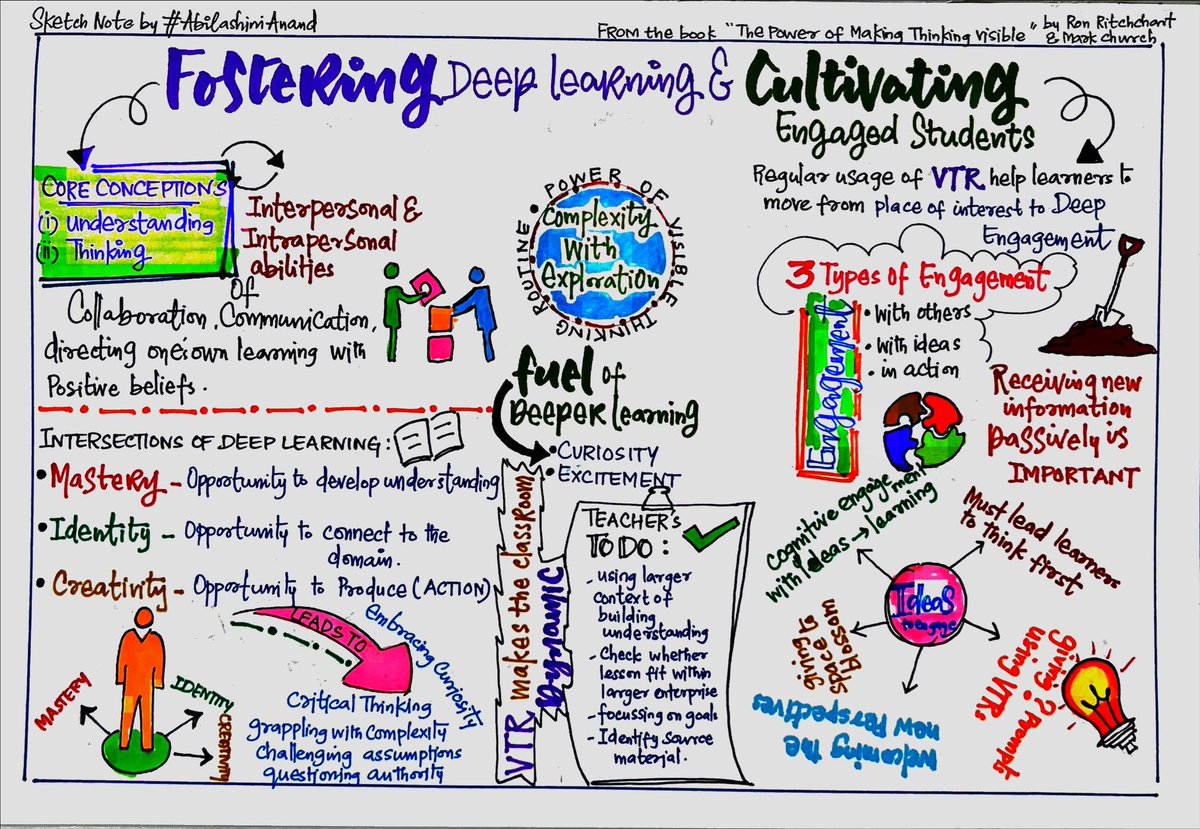 Sketch Note by #Abilashini Anand
FROM the book "The Power of Making Thinking Visible" by Ron Ritchchart
& Mark Church
Fostering Deep learning & Cultivating
Engaged Students
CORE CONCEPTIONS
(i) understanding
(ii) Thinking
Interpersonal &
Intrapersonal
abilities
of
Collaboration, Communication,
directing one's own learning with
Positive beliefs.
INTERSECTIONS OF DEEP LEARNING:
• Mastery - Opportunity to develop understanding
• Identity - Opportunity to connect to the
domain.
• Creativity - Opportunity to Produce (ACTION)
MASTERY
IDENTITY
CREATIVITY
LEADS TO
embracing curiosity
Critical Thinking
grappling with complexity
challenging assumptions
questioning authority
POWER OF VISIBLE THINKING ROUTINE
Complexity
With
Exploration
fuel of
DEEPER learning
• CURIOSITY
• EXCITEMENT
VTR makes the classroom
Dynamic
TEACHER'S
TO DO:
- using larger
context of
building
understanding
- Check whether
lesson fit within
larger enterprise
- focussing on goals
- Identify source
material.
Regular usage of VTR help learners to
move from place of interest to Deep
Engagement
3 Types of Engagement
Engagement
• with others
• with ideas
• in action
Receiving new
information
passively is
IMPORTANT
Cognitive engagement
with ideas → learning
Must lead learners
to think first
Ideas
to engage
giving it
space to
blossom
welcoming the
new perspectives
giving a prompt
using VTRs